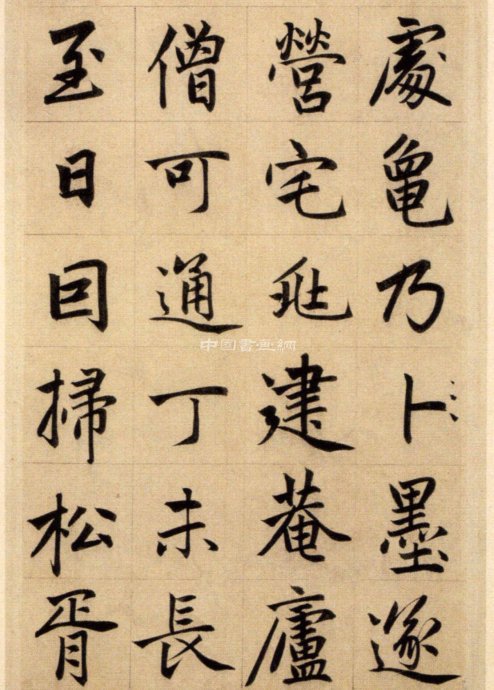 處龜乃卜墨遂
營宅兆建菴廬
僧可通丁未長
至日囙掃松胥
中国書画網